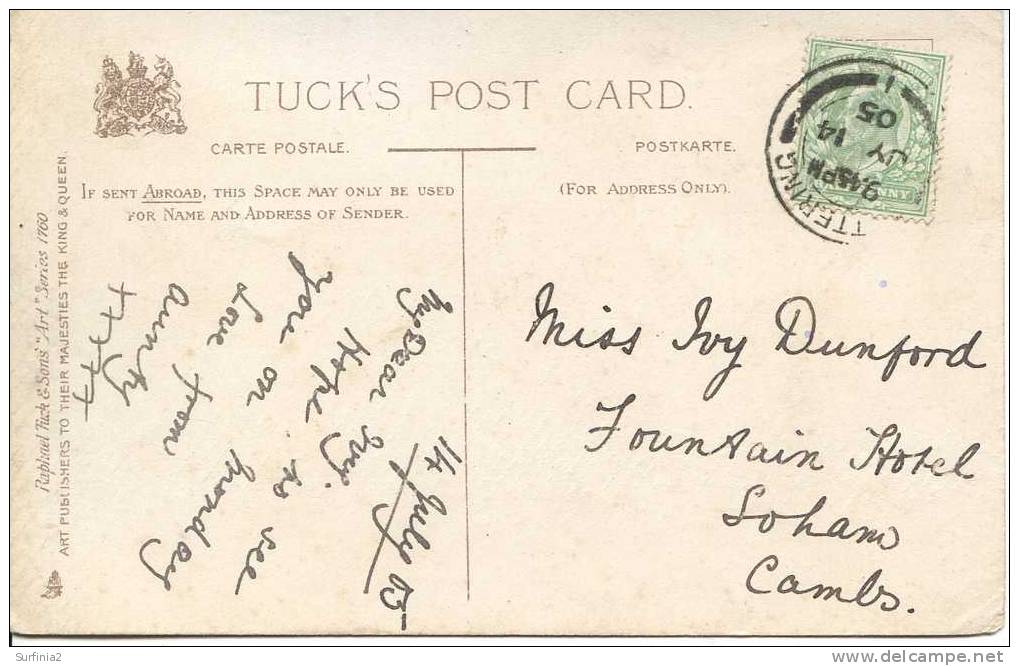 TUCK'S POST CARD.
CARTE POSTALE.
POSTKARTE.
IF SENT ABROAD, THIS SPACE MAY ONLY BE USED
FOR NAME AND ADDRESS OF SENDER.
(FOR ADDRESS ONLY).
Raphael Tuck & Sons' "Art" Series 1760
ART PUBLISHERS TO THEIR MAJESTIES THE KING & QUEEN.
14 July 05
My Dear Ivy
Hope to see
you on Monday
Love from
Aunty
xxxx
Miss Ivy Dunford
Fountain Hotel
Soham
Cambs.
TTERING
9.45PM
JY 14
05
1
NNY
Surfinia2
www.delcampe.net